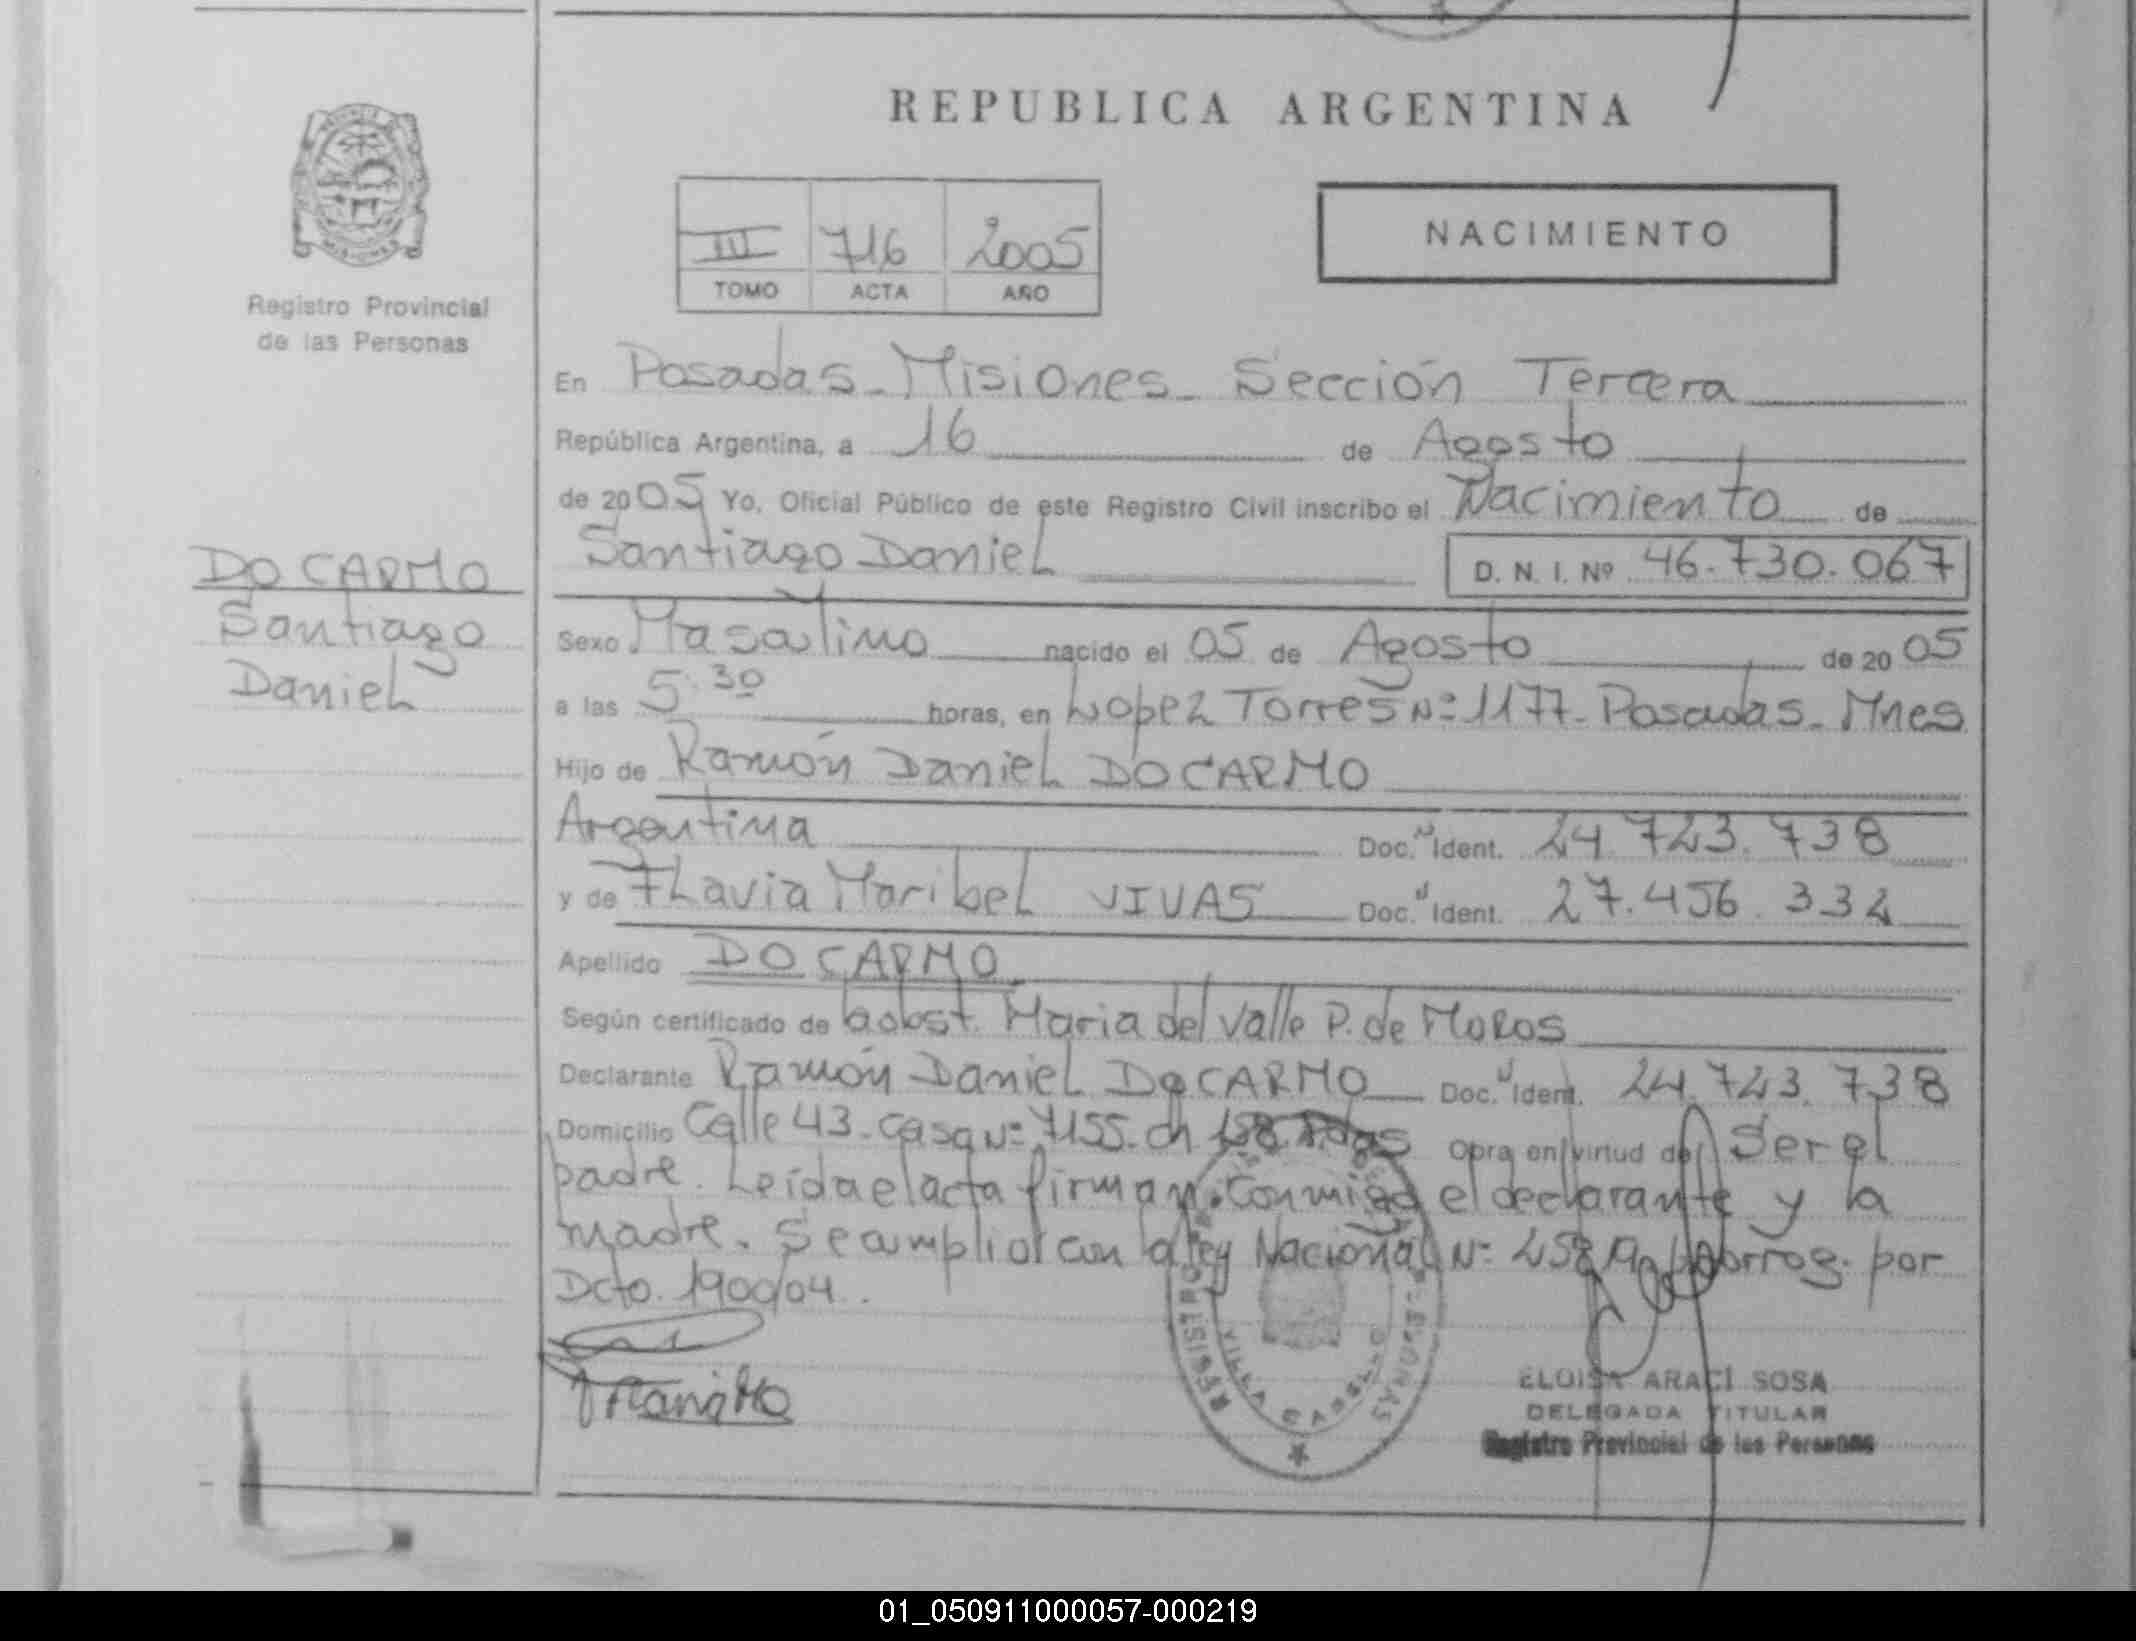 REPUBLICA ARGENTINA
NACIMIENTO
III 716 2005
TOMO ACTA AÑO
Registro Provincial
de las Personas
DO CARMO
Santiago
Daniel
En Posadas - Misiones - Sección Tercera
República Argentina, a 16 de Agosto
de 2005 Yo, Oficial Público de este Registro Civil inscribo el Nacimiento de
Santiago Daniel D. N. I. Nº 46.730.067
Sexo Masculino nacido el 05 de Agosto de 2005
a las 5:30 horas, en Lopez Torres Nº 1177 - Posadas - Mnes
Hijo de Ramón Daniel DO CARMO
Argentina Doc. N Ident. 24.723.738
y de Flavia Maribel VIVAS Doc. Ident. 27.456.332
Apellido DO CARMO
Según certificado de la obst. Maria del Valle P. de Moros
Declarante Ramón Daniel DO CARMO Doc. Ident. 24.723.738
Domicilio Calle 43 - Casa Nº 7155 - ch 158 Pdas Obra en virtud de Ser el
padre. Leída el acta firman conmigo el declarante y la
madre. Se amplió con la ley Nacional Nº prorrog. por
Dcto. 1900/04.
REGISTRO
VILLA CABELLO
ELOISA ARACÍ SOSA
DELEGADA TITULAR
Registro Provincial de las Personas
01_050911000057-000219